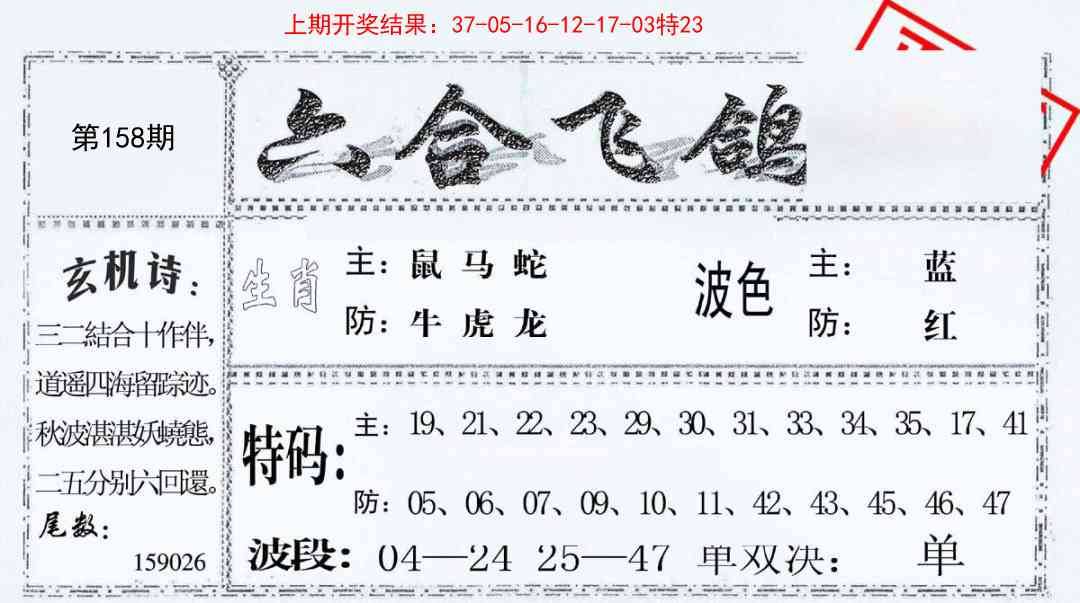 上期开奖结果：37-05-16-12-17-03特23
第158期
六合飞鸽
玄机诗：
三二結合十作伴，
道遥四海留踪迹。
秋波湛湛妖蟯態，
二五分别六回還。
尾数：
159026
生肖
主：鼠 马 蛇
防：牛 虎 龙
波色
主： 蓝
防： 红
特码：
主：19、21、22、23、29、30、31、33、34、35、17、41
防：05、06、07、09、10、11、42、43、45、46、47
波段：04—24 25—47 单双决： 单